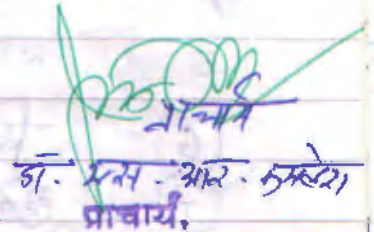 प्राचार्य
डॉ. एस. आर. कमलेश
प्राचार्य,